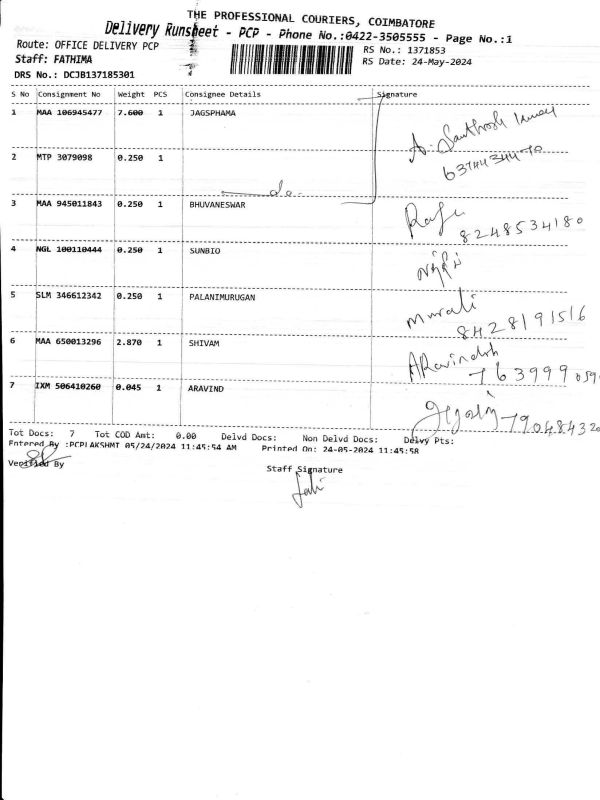 THE PROFESSIONAL COURIERS, COIMBATORE
Delivery Runsheet - PCP - Phone No.:0422-3505555 - Page No.:1
Route: OFFICE DELIVERY PCP RS No.: 1371853
Staff: FATHIMA RS Date: 24-May-2024
DRS No.: DCJB137185301
S No Consignment No Weight PCS Consignee Details Signature
1 MAA 106945477 7.600 1 JAGSPHAMA
A. Santhosh Kumar
2 MTP 3079098 0.250 1
do
3 MAA 945011843 0.250 1 BHUVANESWAR
8248534180
4 NGL 100110444 0.250 1 SUNBIO
5 SLM 346612342 0.250 1 PALANIMURUGAN
Murali
8428191516
6 MAA 650013296 2.870 1 SHIVAM
ARavindh
763999059
7 IXM 506410260 0.045 1 ARAVIND
790484320
Tot Docs: 7 Tot COD Amt: 0.00 Delvd Docs: Non Delvd Docs: Delvy Pts:
Entered By :PCPLAKSHMI 05/24/2024 11:45:54 AM Printed On: 24-05-2024 11:45:58
Verified By
Staff Signature